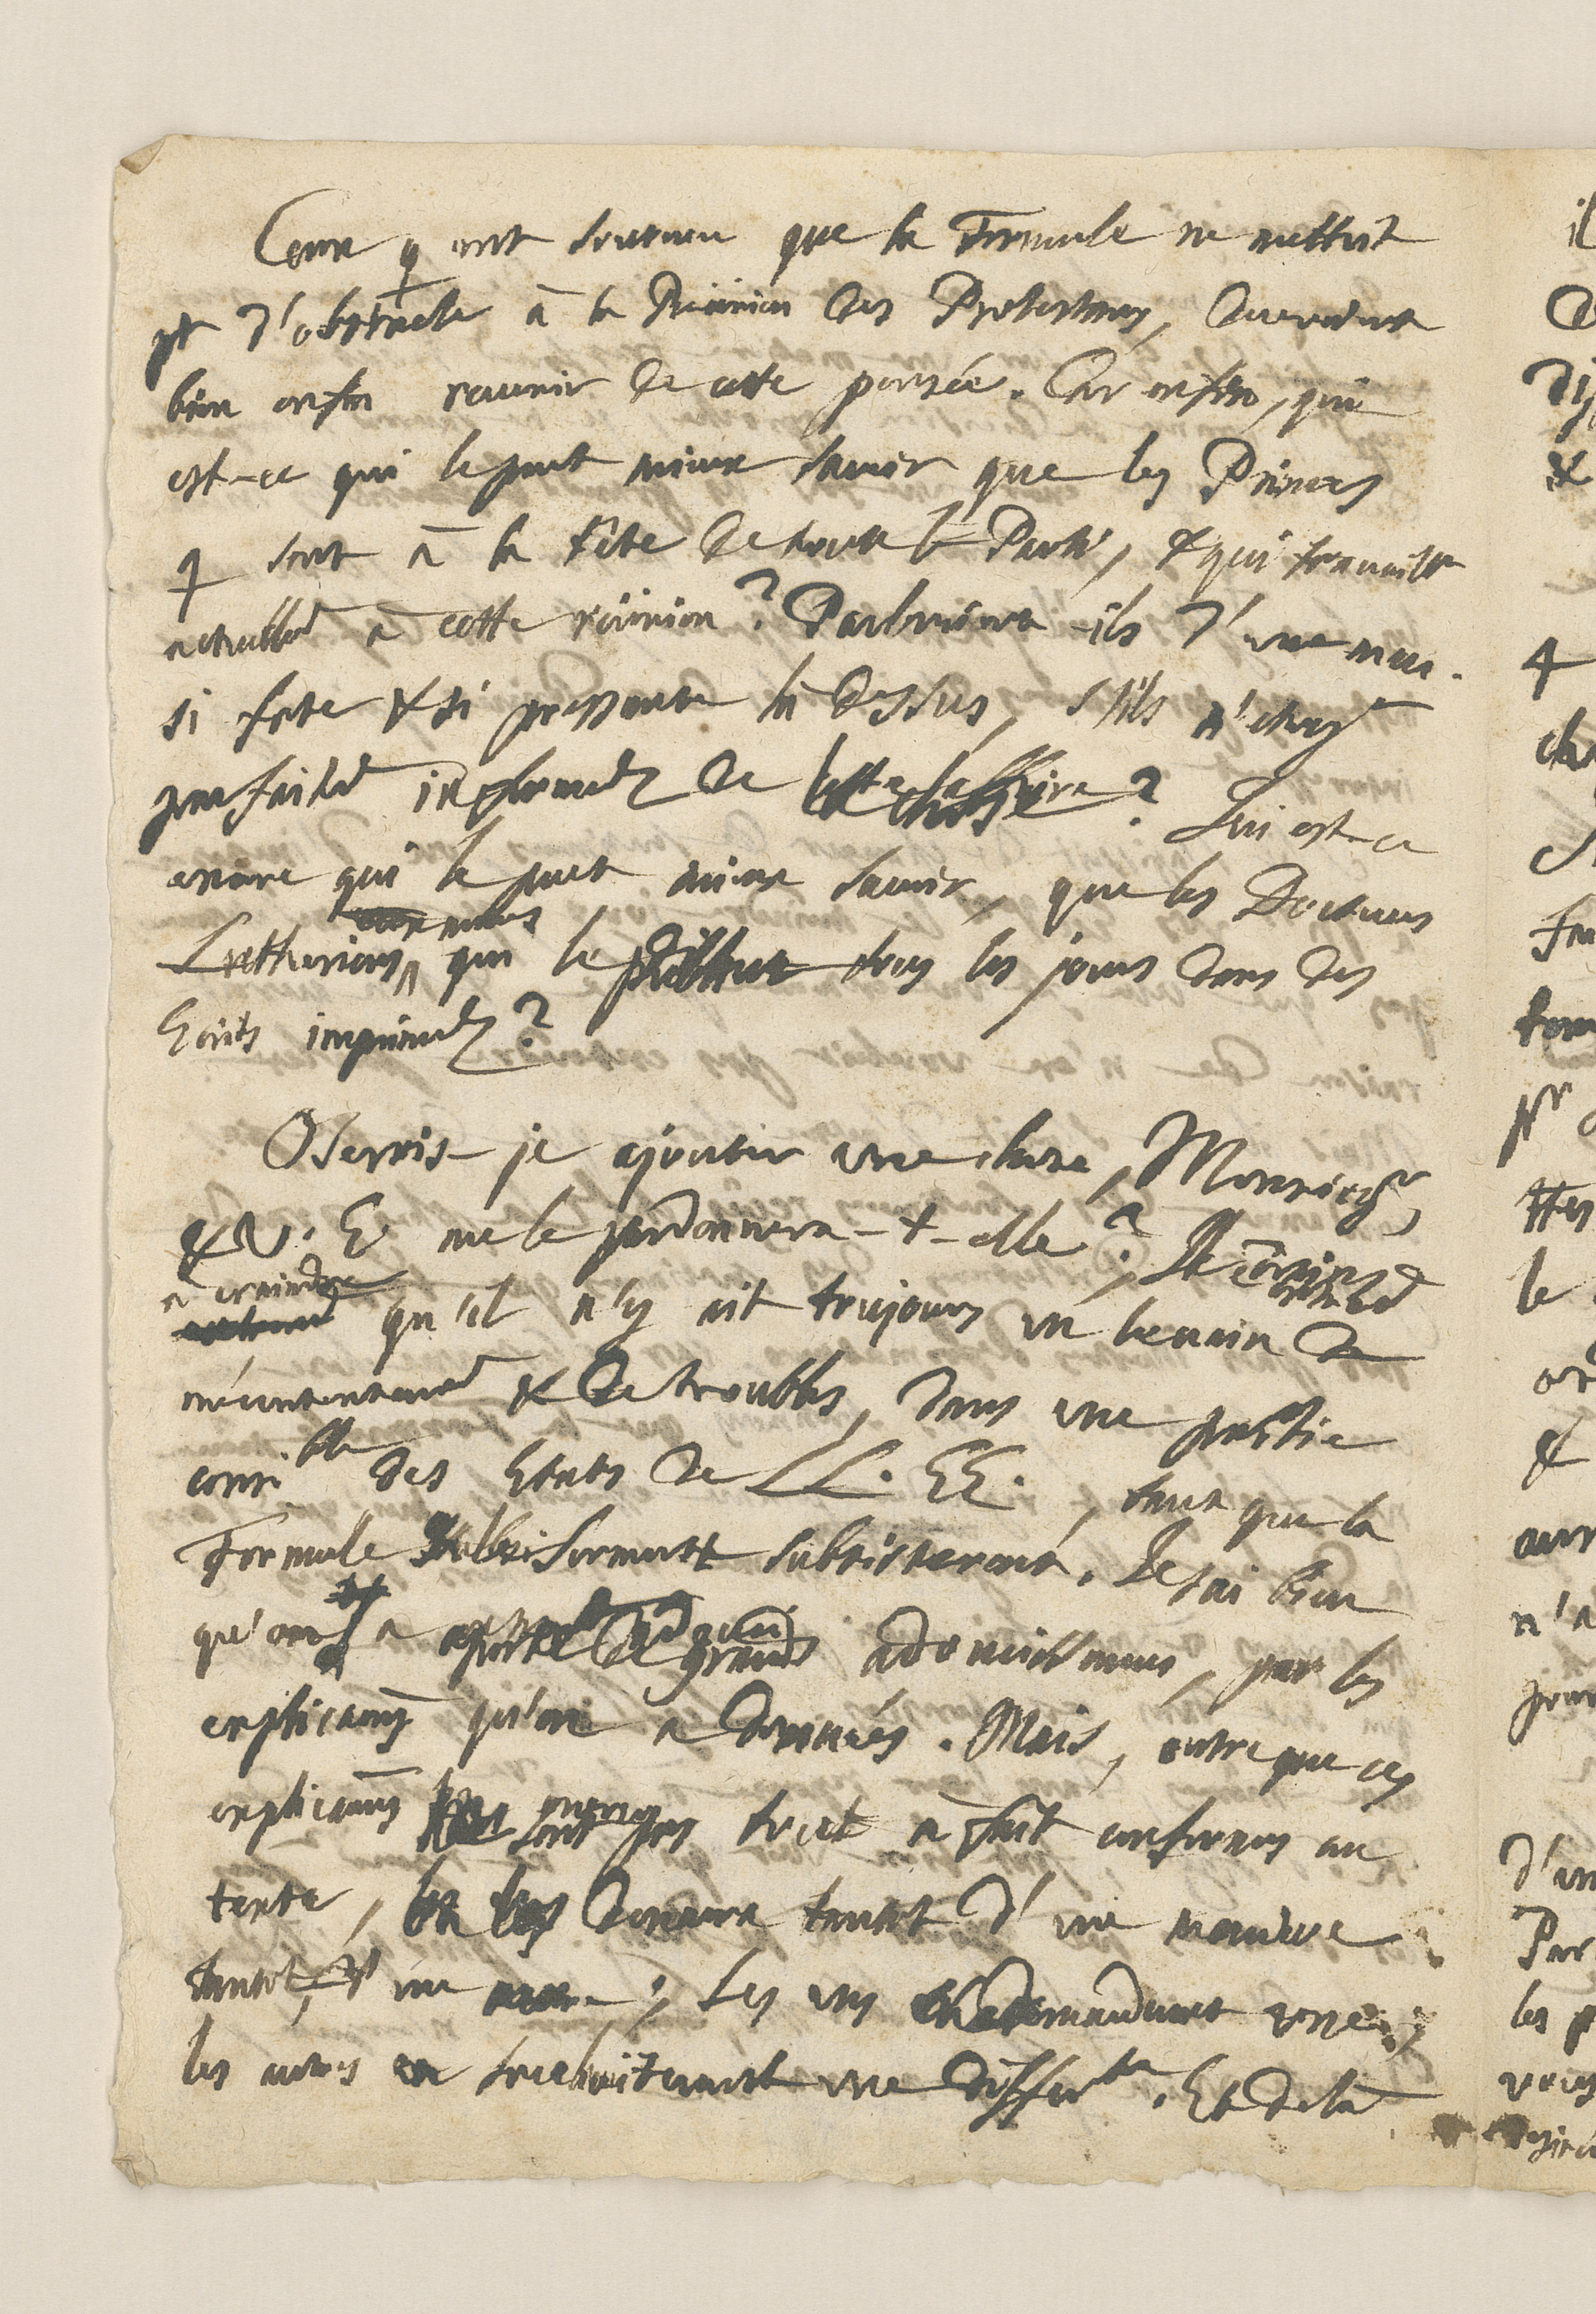 Ceux q ont soutenu que la Formule ne mettoit
pt d'obstacle à la Réünion des Protestans, devroient
bien enfin revenir de cette pensée. Car enfin, qui
est-ce qui le peut mieux savoir que les Princes
q sont à la tête de tout le Parti, & qui travaillt
actuellemt à cette réünion? Parleroient-ils d'une man.
si forte & si pressante là dessus, s'ils n'étoyt
parfaitemt informez de cette affaire? Qui est-ce
encore qui le peut mieux savoir, que les Docteurs
Luthériens, qui le publient tous les jours dans des
Ecrits imprimez?
Oserois-je ajouter une chose, Monseigr,
& V. E. me le pardonnera-t-elle? Il
à craindre
qu'il n'y ait toujours un levain de
mécontentemt & de troubles, dans une partie
considble des Etats de LL. EE., tant que la
Formule subsisteront. Je sai bien
qu'on a apporté adoucissemens, par les
explicaons qu'on a données. Mais, outre que ces
explicaons sont pas tout à fait conformes au
texte, on les donne tantôt d'une maniere
tantôt d'une autre; Les uns en demandent une;
les autres en souhaiteroient une différte. Et de là
il